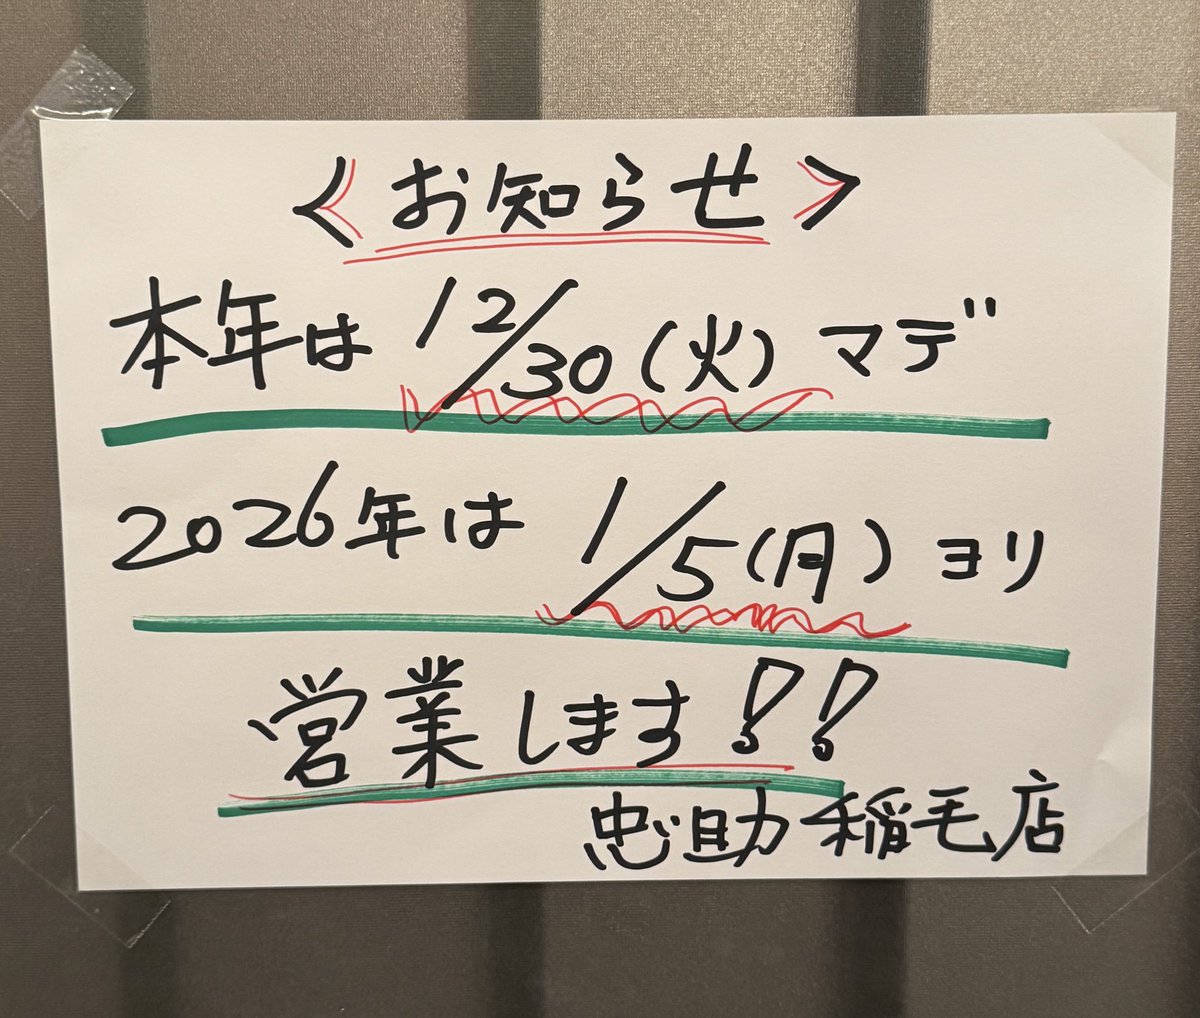 <お知らせ>
本年は12/30(火)マデ
2026年は1/5(月)ヨリ
営業します!!
忠助稲毛店